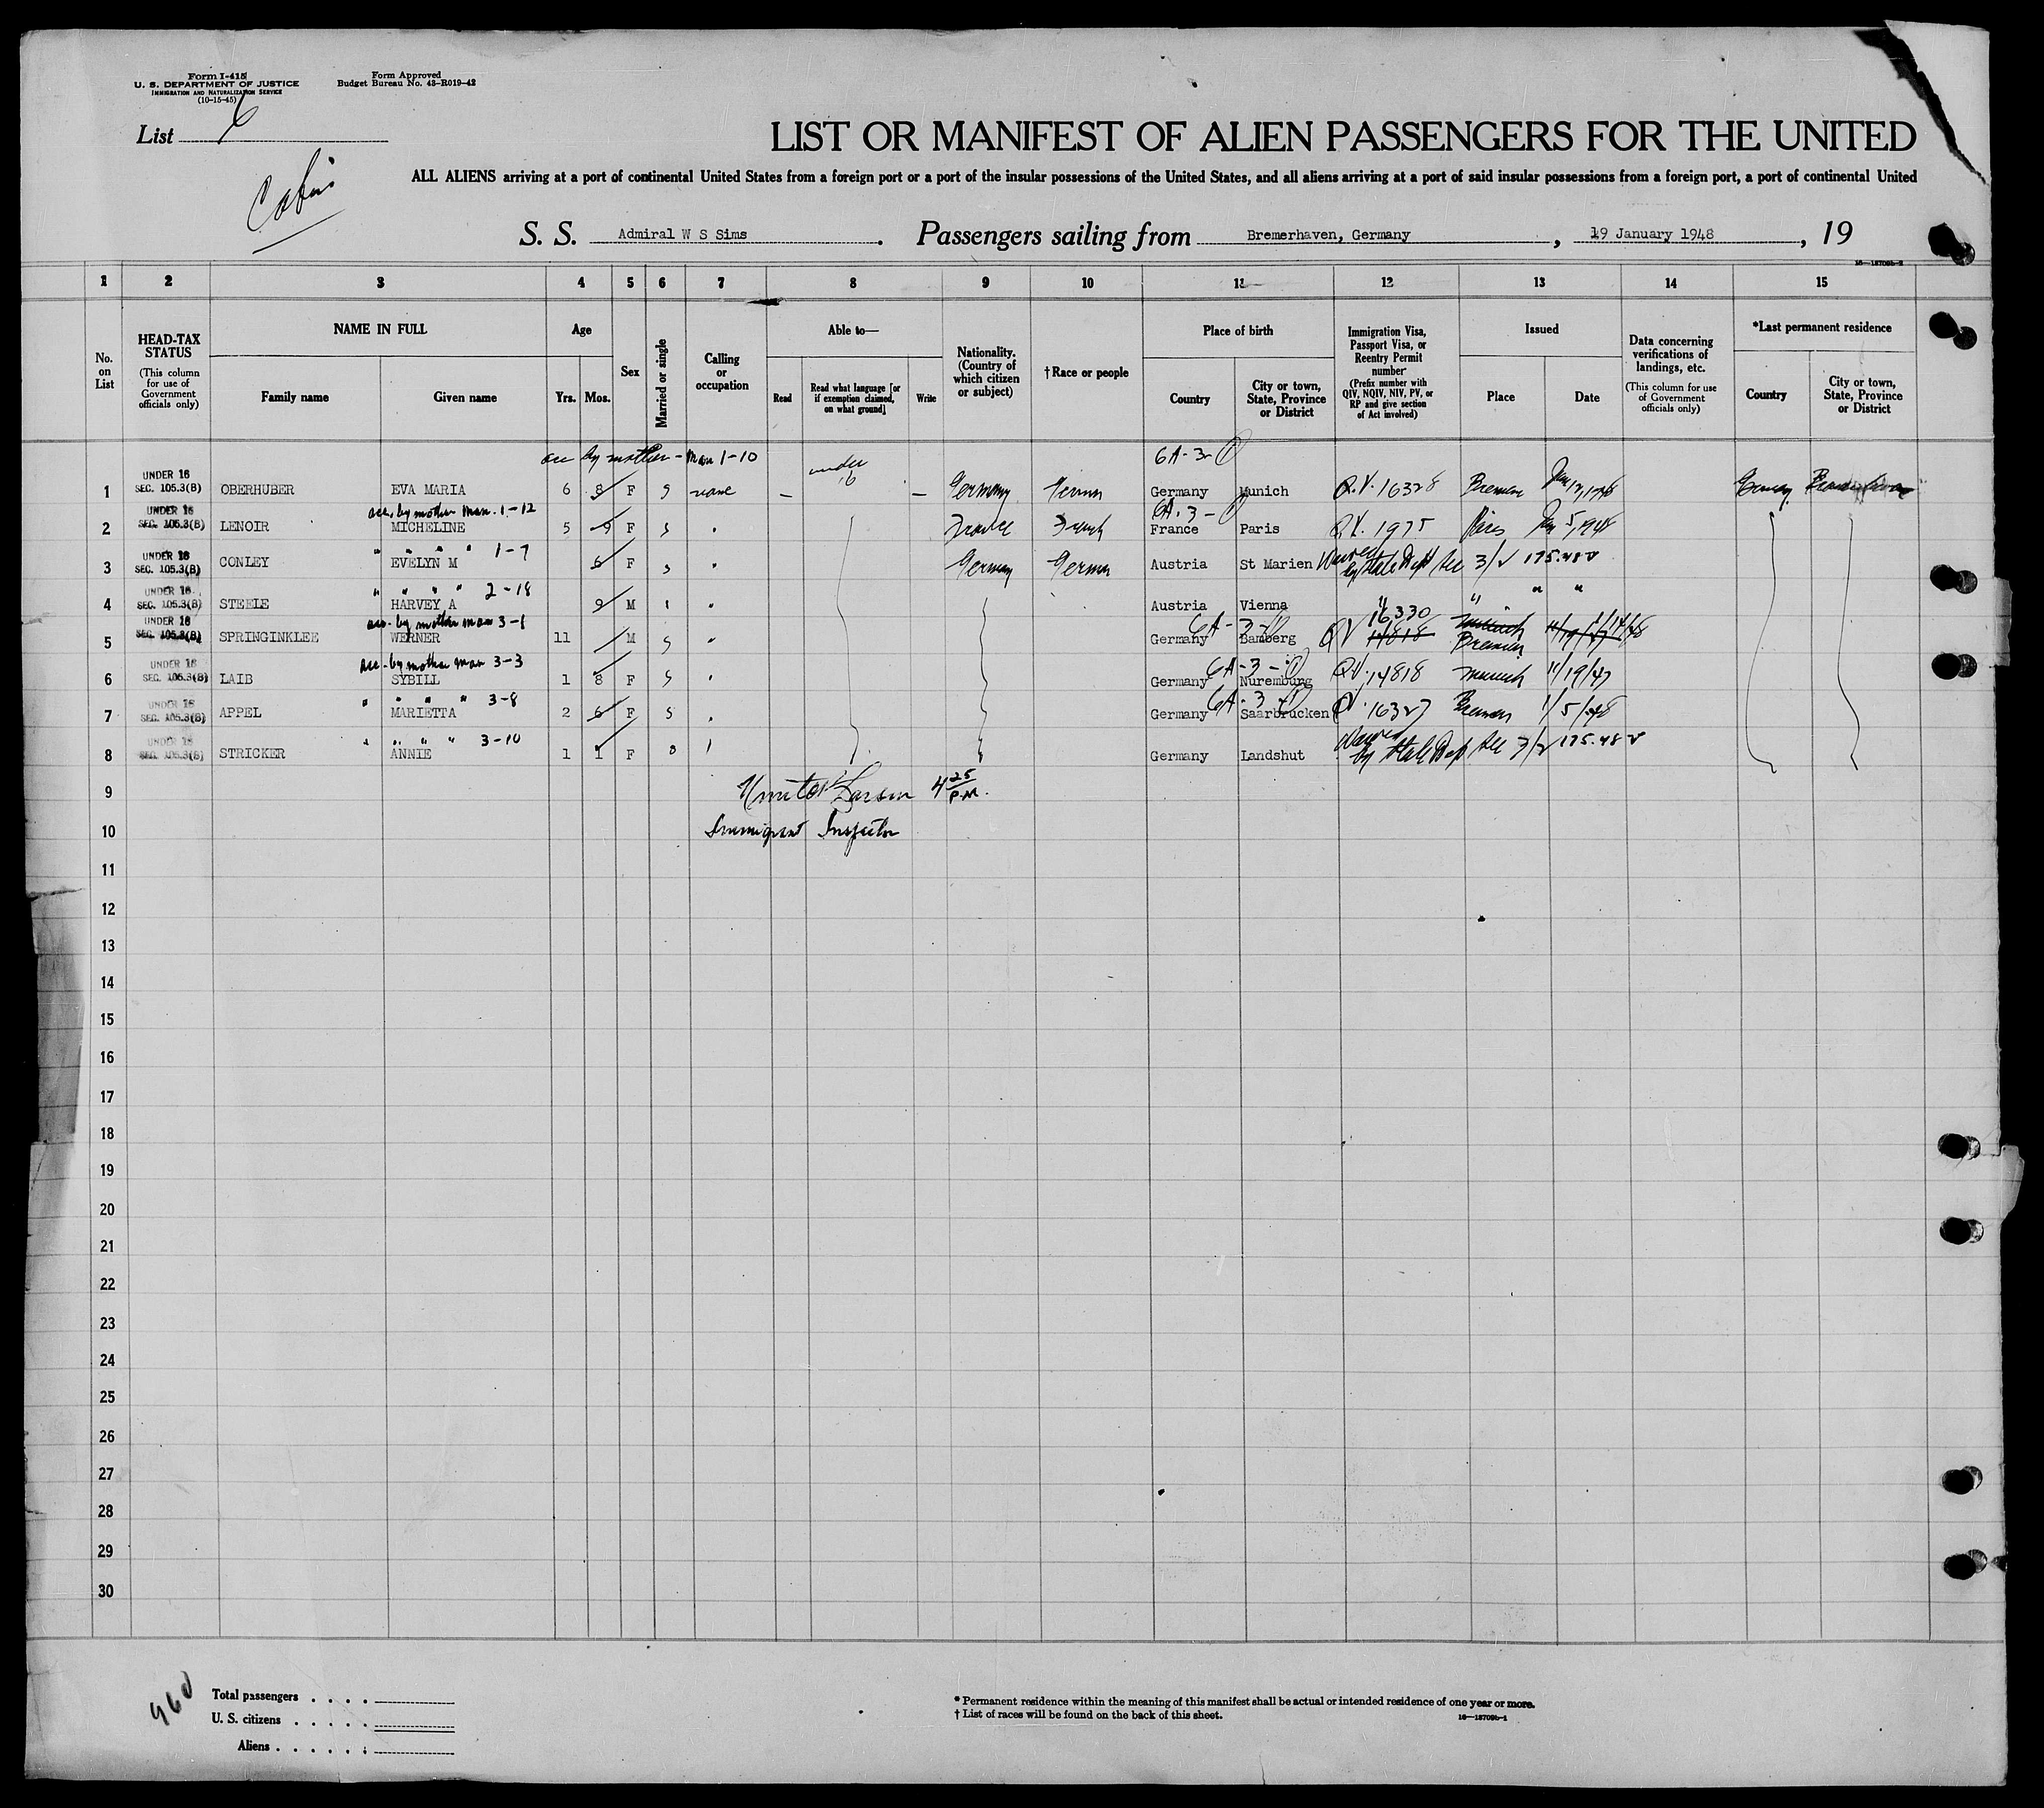 Form I-415
U. S. DEPARTMENT OF JUSTICE
IMMIGRATION AND NATURALIZATION SERVICE
(10-15-45)
Form Approved
Budget Bureau No. 43-R019-42
List 6
Cabin
LIST OR MANIFEST OF ALIEN PASSENGERS FOR THE UNITED
ALL ALIENS arriving at a port of continental United States from a foreign port or a port of the insular possessions of the United States, and all aliens arriving at a port of said insular possessions from a foreign port, a port of continental United
S. S. Admiral W S Sims . Passengers sailing from Bremerhaven, Germany , 19 January 1948 , 19
1 2 3 4 5 6 7 8 9 10 11 12 13 14 15
No. on List
HEAD-TAX STATUS
(This column for use of Government officials only)
NAME IN FULL
Family name
Given name
Age
Yrs. Mos.
Sex
Married or single
Calling or occupation
Able to—
Read
Read what language [or if exemption claimed, on what ground]
Write
Nationality. (Country of which citizen or subject)
†Race or people
Place of birth
Country
City or town, State, Province or District
Immigration Visa, Passport Visa, or Reentry Permit number
(Prefix number with QIV, NQIV, NIV, PV, or RP and give section of Act involved)
Issued
Place
Date
Data concerning verifications of landings, etc.
(This column for use of Government officials only)
*Last permanent residence
Country
City or town, State, Province or District
acc by mother - man 1-10 6A-3-
UNDER 16 SEC. 105.3(B)
1 OBERHUBER EVA MARIA 6 8 F S none — under 16 — Germany German Germany Munich Q.V. 16328 Bremen Germany
acc. by mother man. 1-12 6A-3-
UNDER 16 SEC. 105.3(B)
2 LENOIR MICHELINE 5 9 F S " France French France Paris Q.V. 1975 Paris Jan 5, 1948
" " " " 1-7
UNDER 16 SEC. 105.3(B)
3 CONLEY EVELYN M 6 F S " Germany German Austria St Marien Waived by State Dept Sec 3/2 175.48
" " " " 2-18
UNDER 16 SEC. 105.3(B)
4 STEELE HARVEY A 9 M " Austria Vienna " " " "
acc. by mother man 3-1 6A-3- 16330
UNDER 16 SEC. 105.3(B)
5 SPRINGINKLEE WERNER 11 M S " Germany Bamberg QV 14818 Munich Bremen 1/14/48
acc. by mother man 3-3 6A-3-
UNDER 16 SEC. 105.3(B)
6 LAIB SYBILL 1 8 F S " Germany Nuremburg QV. 14818 Munich 11/19/47
" " " " 3-8 6A-3-
UNDER 16 SEC. 105.3(B)
7 APPEL MARIETTA 2 6 F S " Germany Saarbrucken QV. 16327 Bremen 1/5/48
" " " " 3-10
UNDER 16 SEC. 105.3(B)
8 STRICKER ANNIE 1 1 F Germany Landshut Waived by State Dep Sec 3/2 175.48
9 Larson 4 25 P.M.
10 Immigrant Inspector
11
12
13
14
15
16
17
18
19
20
21
22
23
24
25
26
27
28
29
30
960
Total passengers . . . .
U. S. citizens . . . . .
Aliens . . . . . .
* Permanent residence within the meaning of this manifest shall be actual or intended residence of one year or more.
† List of races will be found on the back of this sheet.